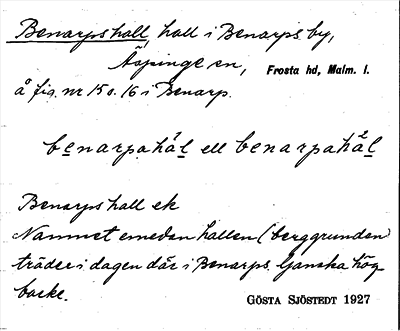 Benarps hall, hall i Benarps by,
Äspinge sn, Frosta hd, Malm. l.
å fig. nr 15 o. 16 i Benarp.
benarpahál ell benarpahàl
Benarps hall ek
Namnet emedan hallen (berggrunden)
träder i dagen där i Benarp. Ganska hög
backe.
GÖSTA SJÖSTEDT 1927